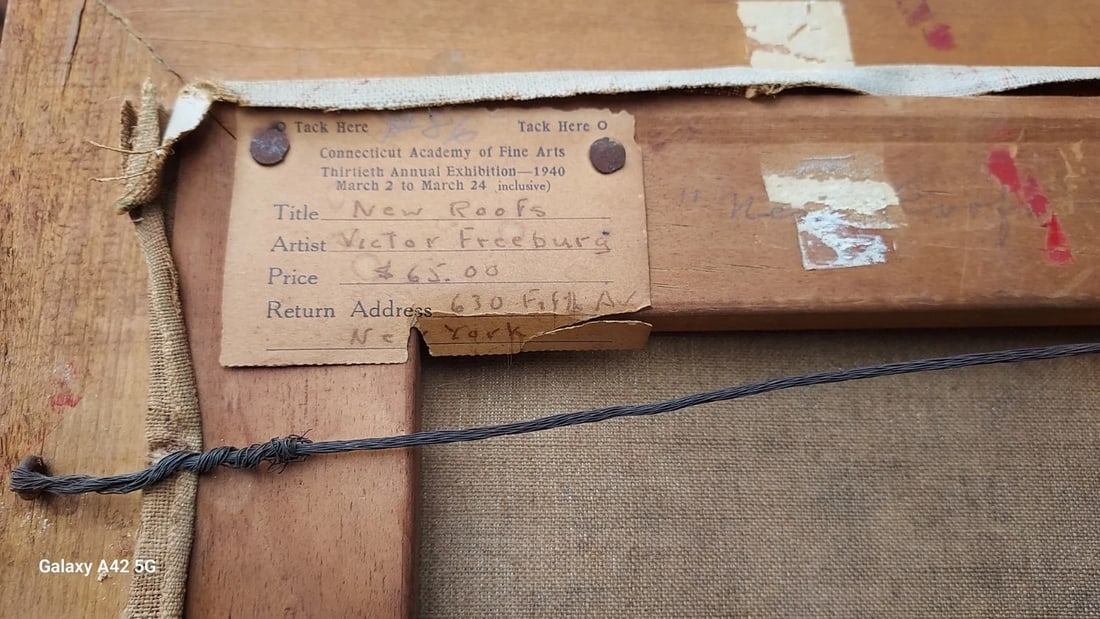 Tack Here
Tack Here O
Connecticut Academy of Fine Arts
Thirtieth Annual Exhibition—1940
March 2 to March 24 inclusive)
Title New Roofs
Artist Victor Freeburg
Price $65.00
Return Address 630 Fifth Av
New York
Galaxy A42 5G